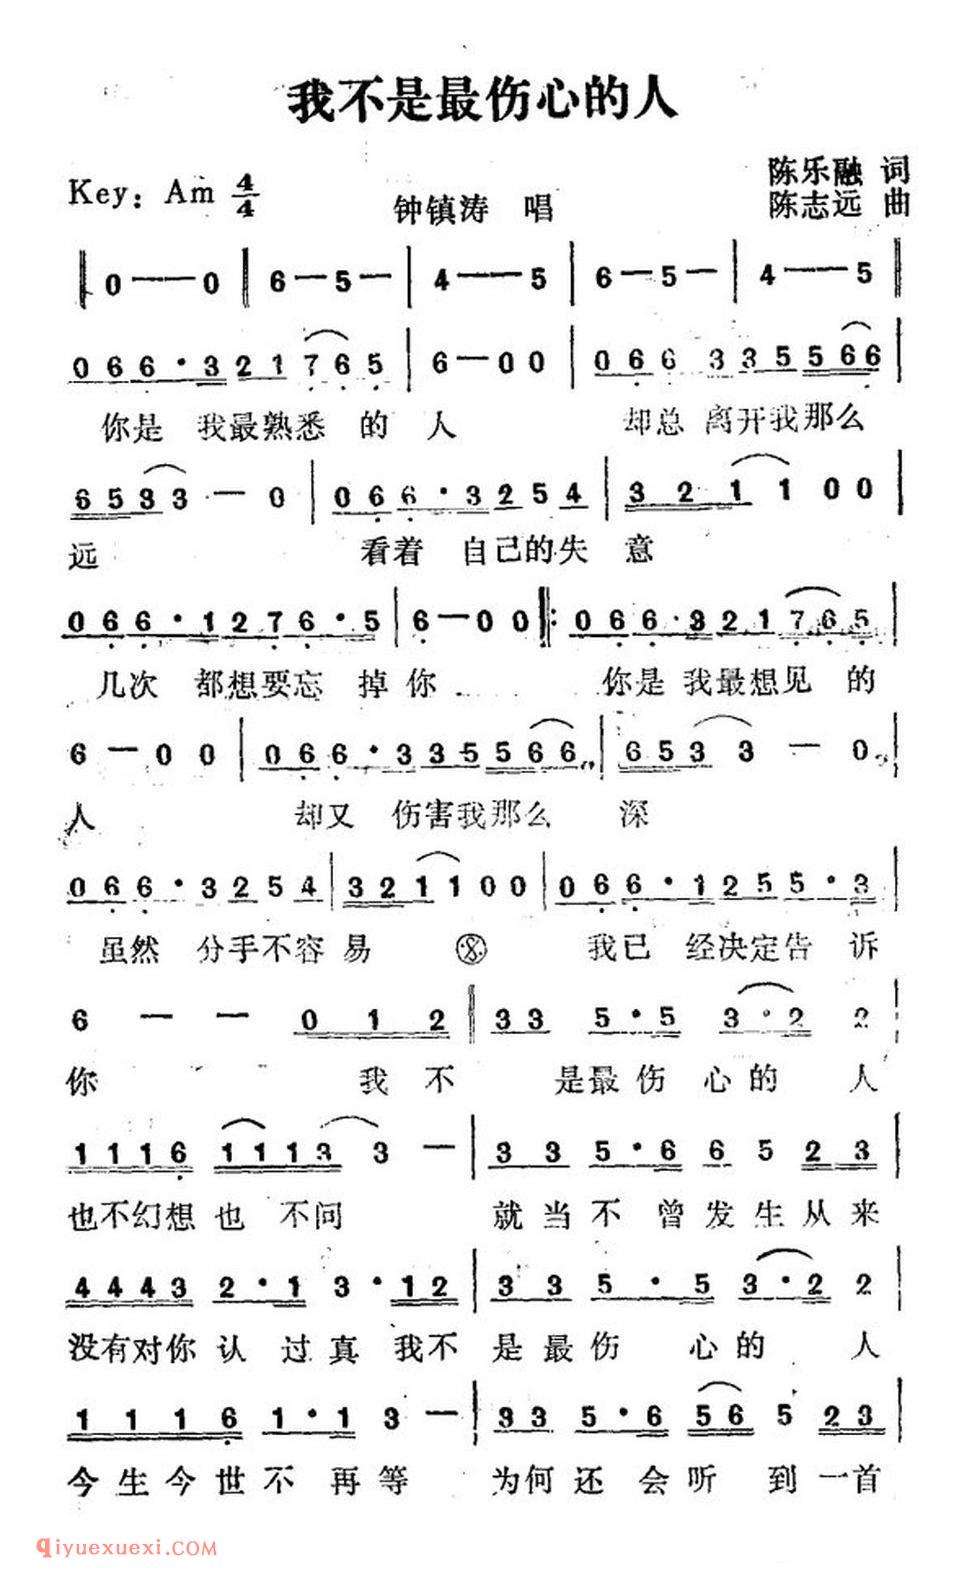 我不是最伤心的人
陈乐融 词
Key: Am 4/4 钟镇涛 唱 陈志远 曲
0——0 6—5— 4——5 6—5— 4——5
066·321765 6—00 066 3355566
你是 我最熟悉 的 人 却总 离开我那么
6533 — 0 066·3254 3211 00
远 看着 自己的失 意
066·1276·5 6—00 066·321765
几次 都想要忘 掉你 你是 我最想见 的
6—00 066·3355566 6533 — 0
人 却又 伤害我那么 深
066·3254 321100 066·1255·3
虽然 分手不容易 我已 经决定告 诉
6 — — 012 33 5·5 3·2 2
你 我 不 是最 伤 心 的 人
1116 1113 3 — 33 5·6 6 5 23
也不幻想也 不问 就当不 曾发生从来
4443 2·1 3·12 33 5·5 3·2 2
没有对你认 过真 我不 是最伤 心的 人
1116 1·1 3 — 33 5·6 56 5 23
今生今世不 再等 为何还 会听 到一首
qiyuexuexi.COM